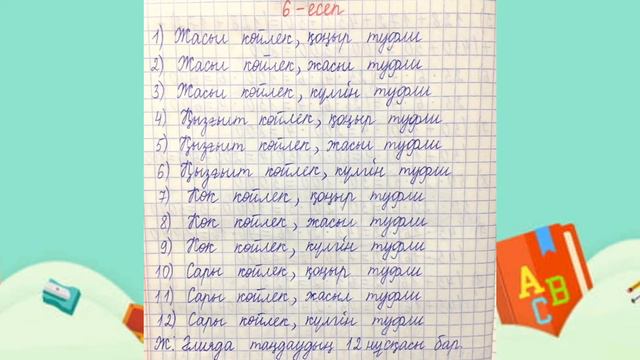 6-есеп
1) Жасыл көйлек, қоңыр туфли
2) Жасыл көйлек, жасыл туфли
3) Жасыл көйлек, күлгін туфли
4) Қызғылт көйлек, қоңыр туфли
5) Қызғылт көйлек, жасыл туфли
6) Қызғылт көйлек, күлгін туфли
7) Көк көйлек, қоңыр туфли
8) Көк көйлек, жасыл туфли
9) Көк көйлек, күлгін туфли
10) Сары көйлек, қоңыр туфли
11) Сары көйлек, жасыл туфли
12) Сары көйлек, күлгін туфли
Ж: Ғалияда таңдаудың 12 нұсқасы бар.
A B C